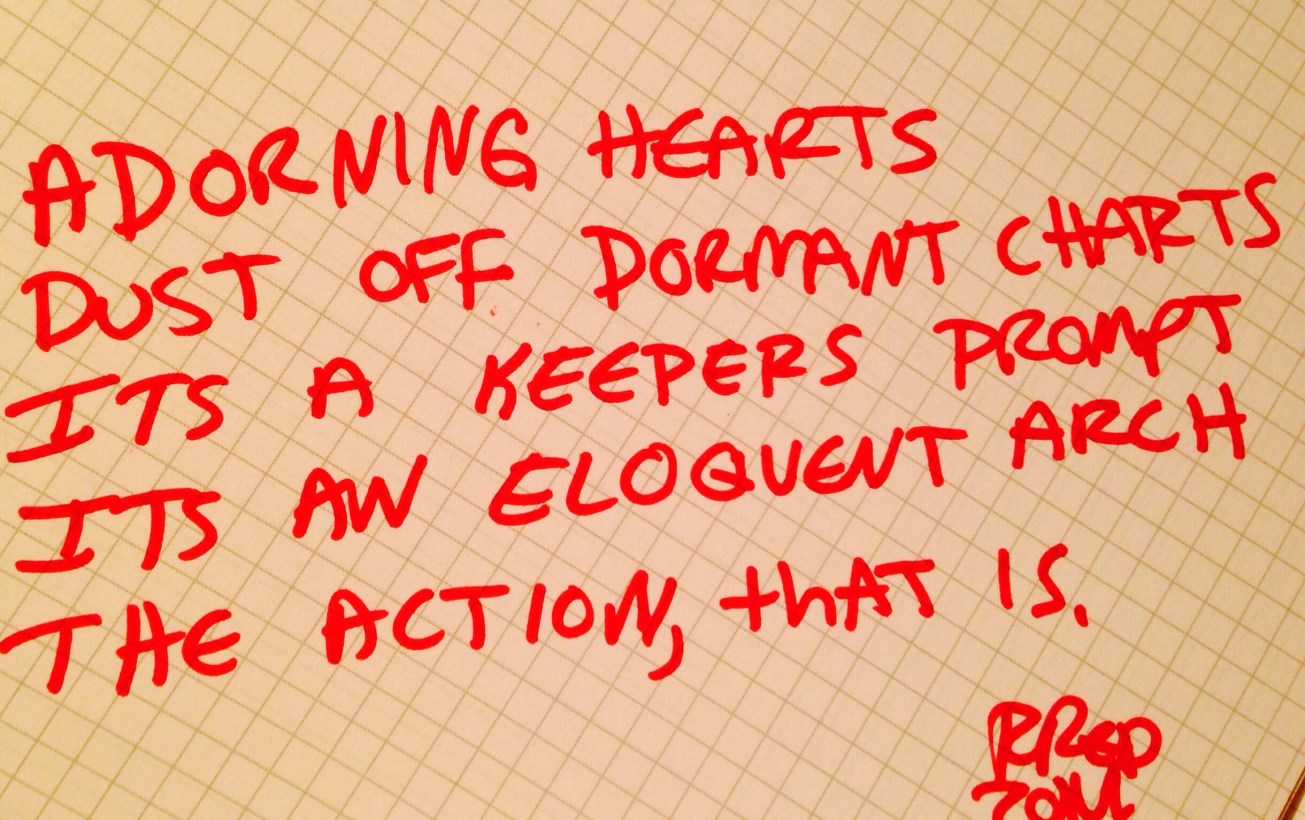 ADORNING HEARTS
DUST OFF DORMANT CHARTS
ITS A KEEPERS PROMPT
ITS AN ELOQUENT ARCH
THE ACTION, thAT IS.